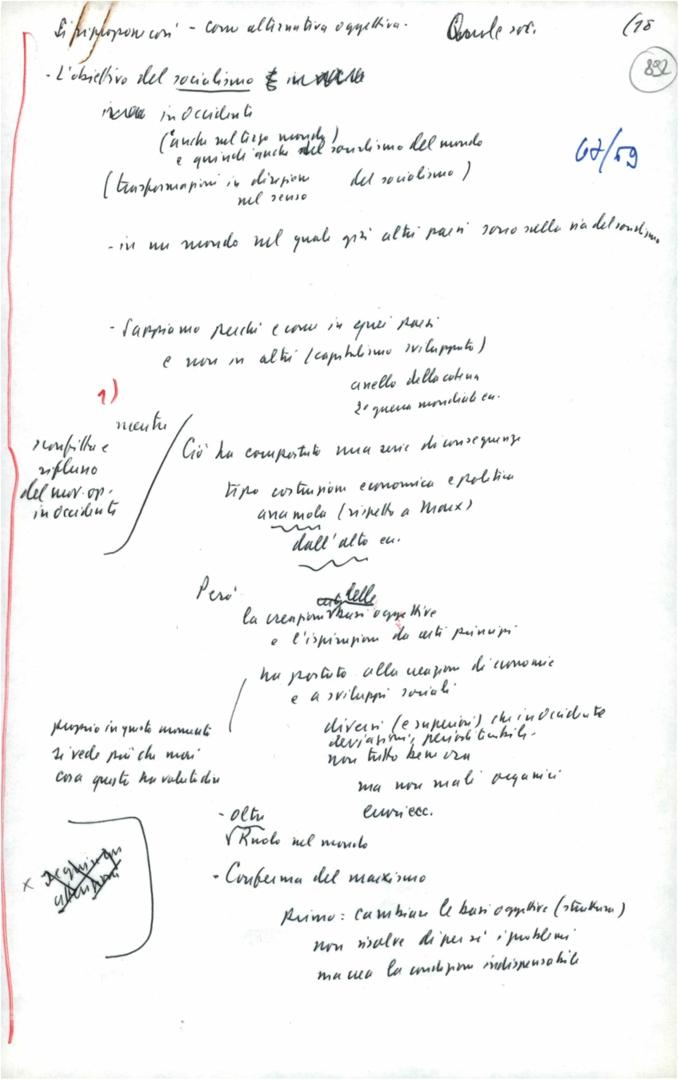 Si ripropone così - come alternativa oggettiva. Quale soc. (18
892
- L'obiettivo del socialismo
in occidente
(anche nel terzo mondo)
e quindi anche del socialismo del mondo
67/59
(trasformazioni in direzione del socialismo)
nel senso
- in un mondo nel quale già altri paesi sono sulla via del socialismo
- Sappiamo perché e come in quei paesi
e non in altri (capitalismo sviluppato)
anello della catena
2a guerra mondiale ecc.
1)
mentre
sconfitte e
riflusso
del mov. op.
in occidente
Ciò ha comportato una serie di conseguenze
tipo costruzione economica e politica
anomala (rispetto a Marx)
dall'alto ecc.
Però
delle
la creazione basi oggettive
e l'ispirazione da certi principi
ha portato alla creazione di economie
e a sviluppi sociali
proprio in questo momento
si vede più che mai
cosa questo ha voluto dire
diversi (e superiori) che in occidente
deviazioni,
non tutto bene ora
ma non mali organici
errori ecc.
- oltre
Ruolo nel mondo
- Conferma del marxismo
x
primo: cambiare le basi oggettive (struttura)
non risolve di per sé i problemi
ma crea la condizione indispensabile